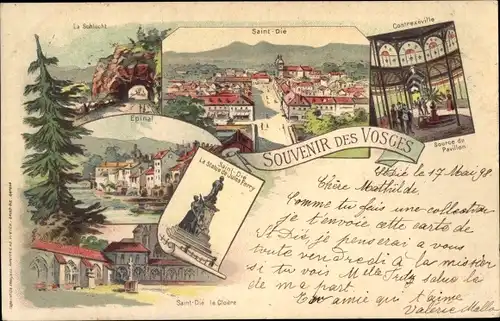 La Schlucht
Saint-Dié
Contrexéville
Epinal
SOUVENIR DES VOSGES
Source du
Pavillon
Saint-Dié
La Statue de Jules Ferry
Saint-Dié le Cloître
St Dié le 17 Mai 98
Chère Mathilde
Comme tu fais une collection
je t'envoie cette carte de
St Dié je penserai a vous
toute vendredi à la mission
si tu vois Mlle Fritz salue la
de m a part.
Ton amie qui t'aime
Valerie